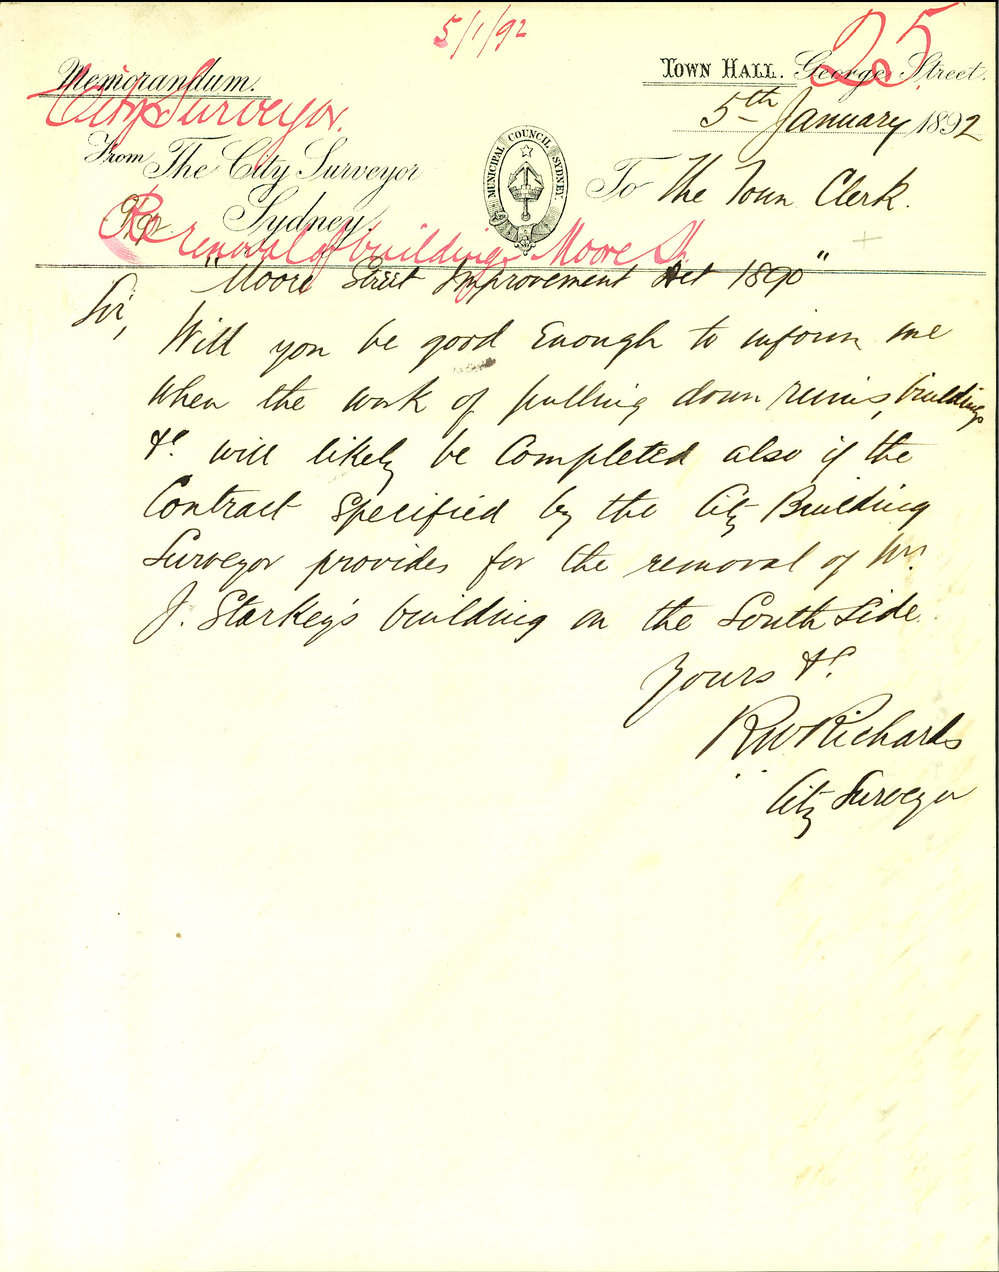 5/1/92
25
Memorandum.
Town Hall. George Street.
City Surveyor.
5th January 1892
From The City Surveyor
MUNICIPAL COUNCIL SYDNEY
To The Town Clerk.
Sydney.
Re removal of buildings Moore St.
"Moore Street Improvement Act 1890"
Sir,
Will you be good Enough to inform me
when the work of pulling down ruins, buildings
&c. will likely be Completed also if the
Contract Specified by the City Building
Surveyor provides for the removal of Mr.
J. Starkey's building on the South Side.
Yours &c.
RW Richards
City Surveyor